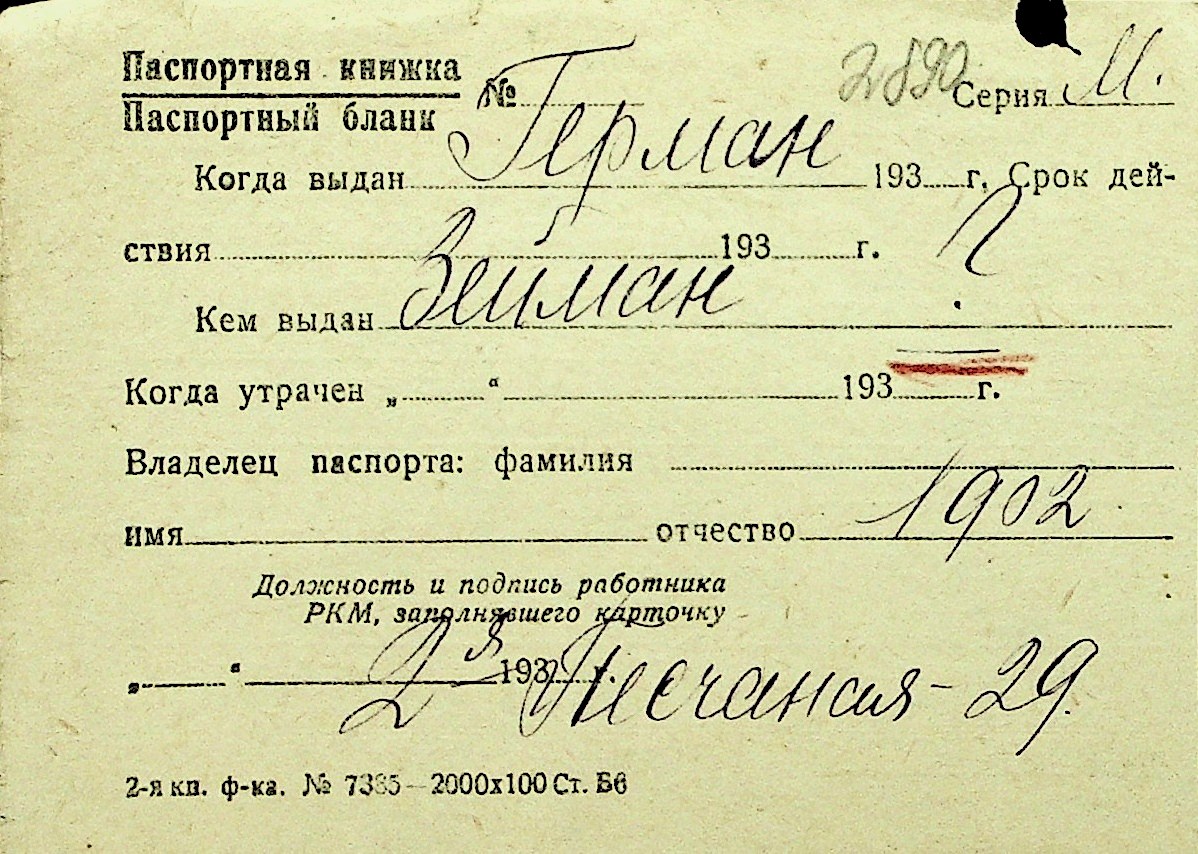 Паспортная книжка № 2890 Серия М.
Паспортный бланк
Герман
Когда выдан 193 г. Срок дей-
ствия 193 г. ?
Зейман
Кем выдан
Когда утрачен „ “ 193 г.
Владелец паспорта: фамилия
имя отчество 1902
Должность и подпись работника
РКМ, заполнявшего карточку
„ “ 193 г.
2я Песчаная - 29.
2-я кп. ф-ка. № 7385—2000х100 Ст. Б6